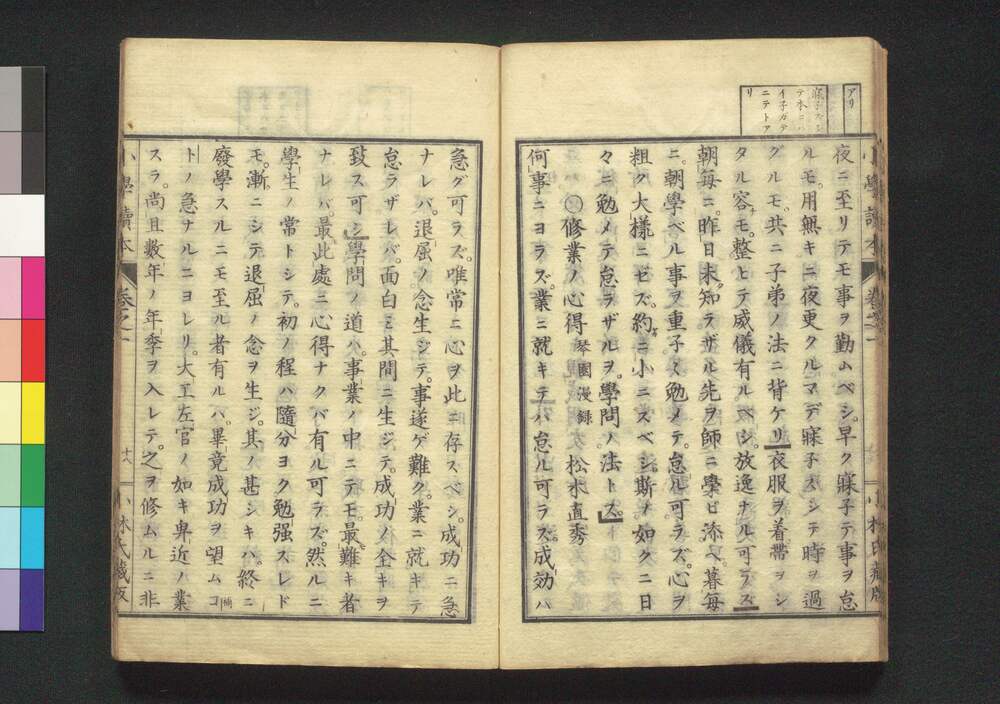 アリ
寐子スシ
テ本ニハ
イ子ガテ
ニテトア
リ
小學讀本
卷之一
小林氏藏版
夜ニ至リテモ事ヲ勤ムベシ。早ク寐子テ事ヲ怠
ルモ。用無キニ夜更クルマデ寐子ズシテ時ヲ過
グルモ。共ニ子弟ノ法ニ背ケリ」衣服ヲ着帶ヲシ
タル容モ。整ヒテ威儀有ルベシ。放逸ナル可ラズ」
朝每ニ。昨日未知ラザル先ヲ師ニ學ビ添ヘ。暮每
ニ。朝學ベル事ヲ重子〻勉メテ。怠ル可ラズ。心ヲ
粗ク大樣ニセズ。約ニ小ニスベシ。斯ノ如クニ日
々ニ勉メテ怠ラザルヲ。學問ノ法トス」
修業ノ心得 琴園漫錄 松本直秀
何事ニヨラズ。業ニ就キテハ怠ル可ラズ。成効ハ
急グ可ラズ。唯常ニ心ヲ此ニ存スベシ。成功ニ急
ナレバ。退屈ノ念生シテ。事遂ゲ難ク。業ニ就キテ
怠ラザレバ。面白ミ其間ニ生ジテ。成功ノ全キヲ
致ス可シ」學問ノ道ハ。事業ノ中ニテモ。最難キ者
ナレバ。最此處ニ心得ナクバ有ル可ラズ。然ルニ
學生ノ常トシテ。初ノ程ハ隨分ヨク勉强スレド
モ。漸ニシテ退屈ノ念ヲ生ジ。其ノ甚シキハ。終ニ
廢學スルニモ至ル者有ルハ。畢竟成功ヲ望ムコ
トノ急ナルニヨレリ。大工左官ノ如キ卑近ノ業
スラ。尚且數年ノ年季ヲ入レテ。之ヲ修ムルニ非
小學讀本
卷之一
十八
小林氏藏版